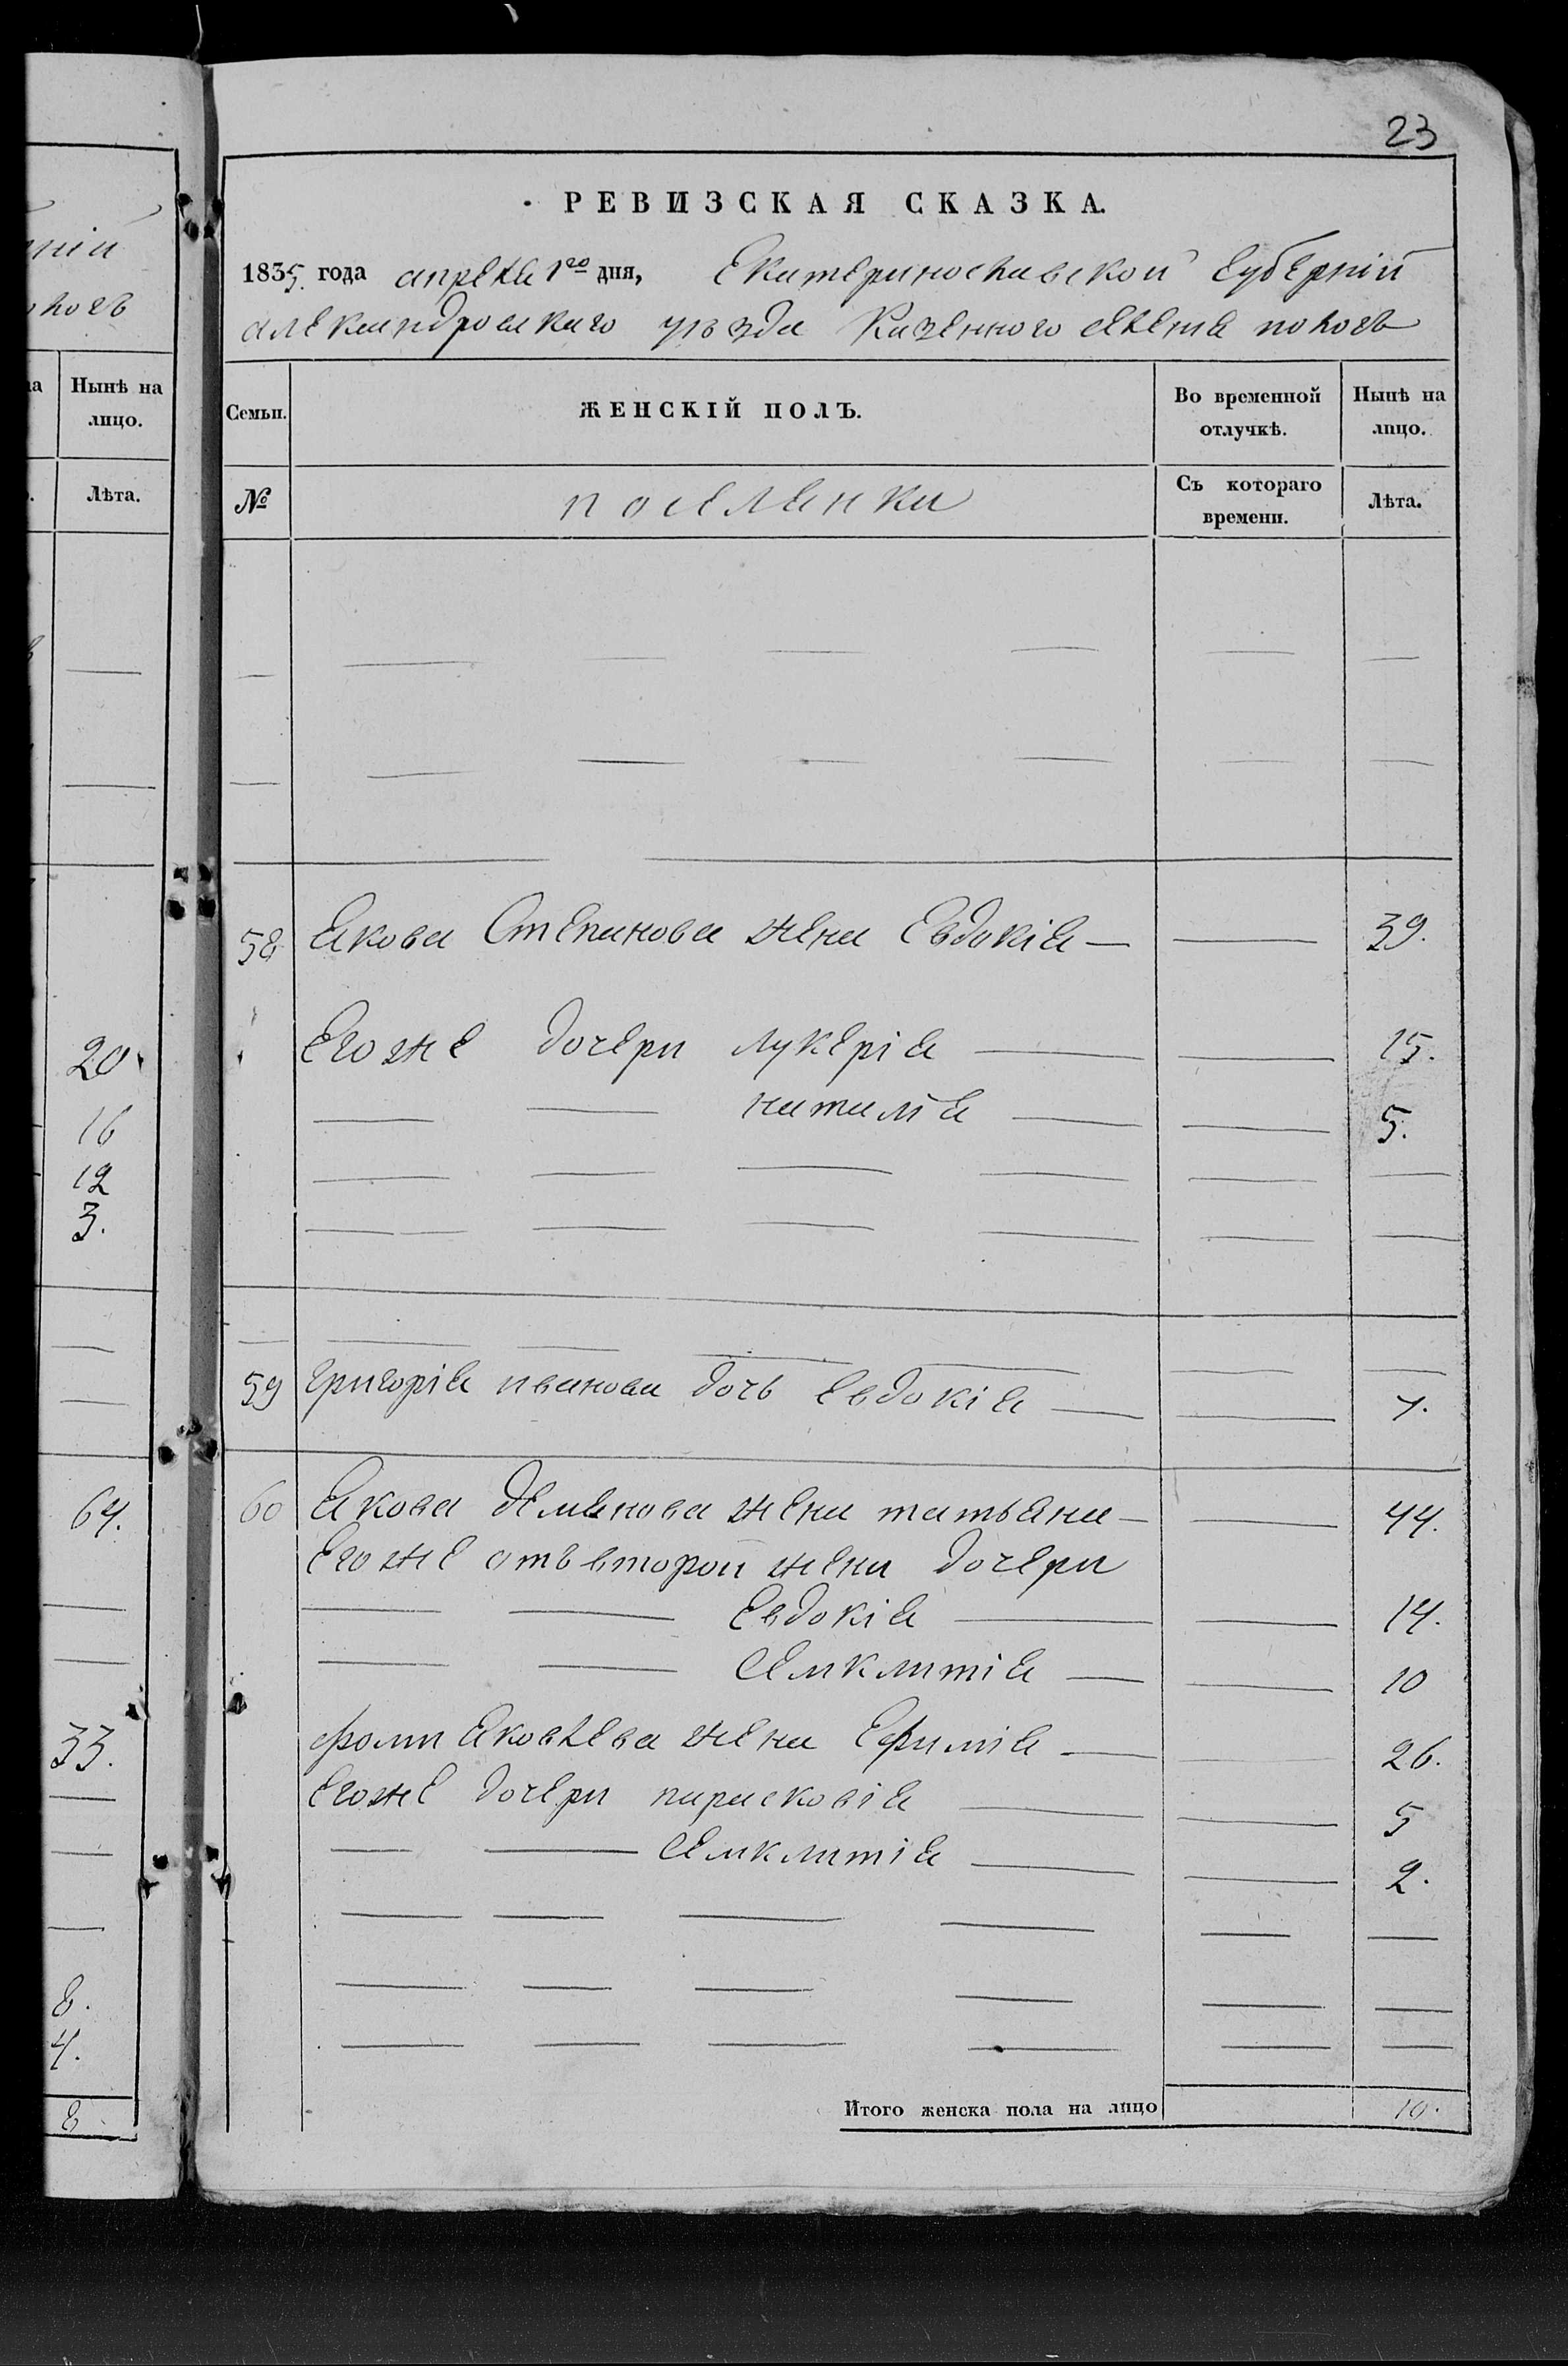 ній
логъ
на
Нынѣ на
лицо.
Лѣта.
20
16
12
3.
64.
33.
8.
4.
8
23
РЕВИЗСКАЯ СКАЗКА.
1835. года апреля 1го дня, Екатеринославской Губерніи
александровскаго уѣзда Казенного селенія пологъ
Семьи. ЖЕНСКІЙ ПОЛЪ. Во временной отлучкѣ. Нынѣ на лицо.
№ поселянки Съ котораго времени. Лѣта.
58 Якова Степанова жена Евдокія — — 39.
Его же дочери лукерія — — 15.
— — наталія — — 5.
59 григорія иванова дочь Евдокія — —
60 Якова Деменова жена татьяна — — 44.
Его же отъ второй жени дочери
— — Евдокія — — 14.
— — Семклитія — — 10
фоми яковлева жена Ефимія — — 26.
Его же дочери парасковія — — 5
— — Семклитія — — 2.
Итого женска пола на лицо 10.